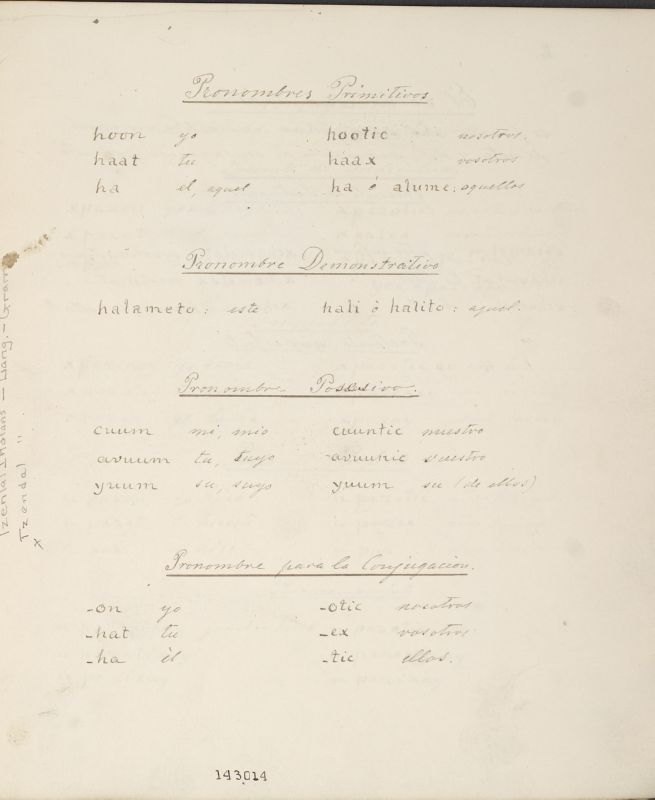 Pronombres Primitivos
hoon yo hootic nosotros.
haat tu haax vosotros
ha el, aquel ha ó alume: aquellos
Pronombre Demonstrativo
halameto: este hali ó halito: aquel.
Pronombre Posesivo.
cuum mi, mio cuuntic nuestro
avuum tu, tuyo avuunic vuestro
yuum su, suyo yuum su (de ellos)
Pronombre para la Conjugacion.
-on yo -otic nosotros
-hat tu -ex vosotros
-ha él -tic ellos.
Tzental Indians — Lang. - Gram
Tzendal "
x
143014